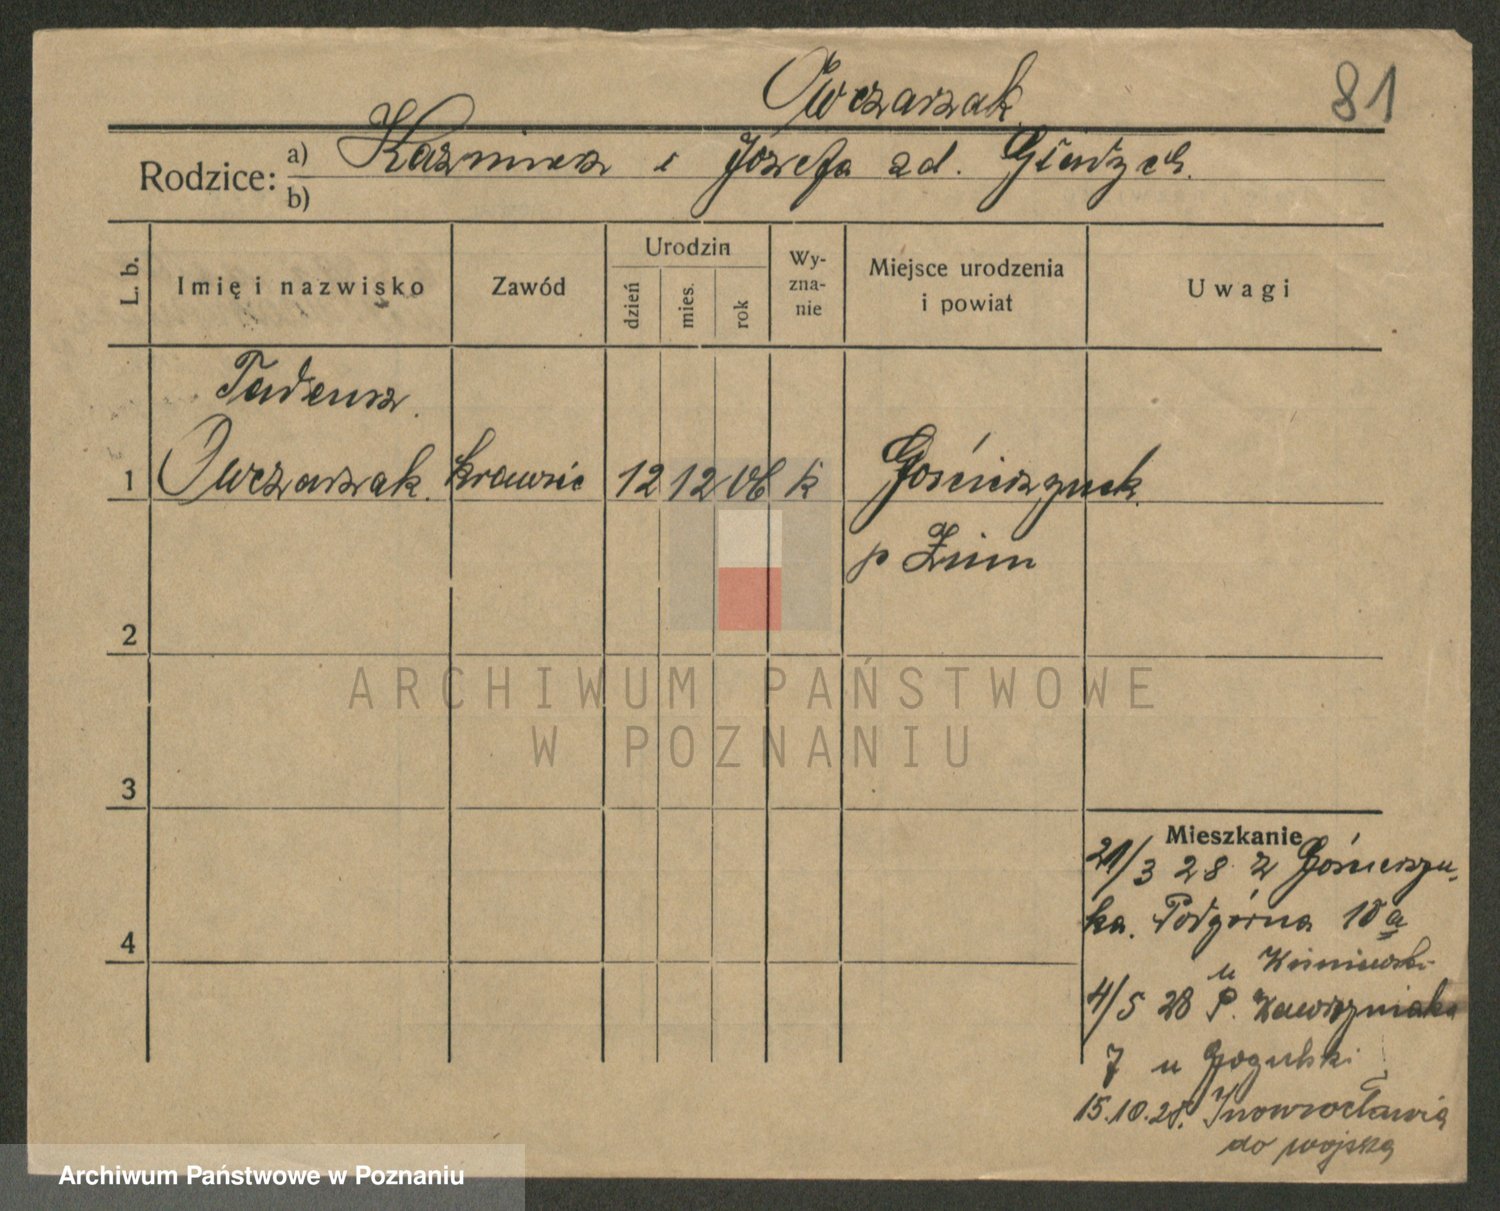 Owczarzak
81
Rodzice: a) Kazmierz i Józefa zd.
b)
L. b.
Imię i nazwisko
Zawód
Urodzin
dzień
mies.
rok
Wy-
zna-
nie
Miejsce urodzenia
i powiat
Uwagi
Tadeusz
1 Owczarzak krawiec 12 12 06 k Gościeszynek
p Żnin
2
3
4
ARCHIWUM PAŃSTWOWE
W POZNANIU
Mieszkanie
21/3 28 z Gościeszyn-
ka. Podgórna 10a
u Wiśniewski
4/5 28 P. Wawrzyniaka
7 u Gogulski
15.10.28. Inowrocławia
do wojska
Archiwum Państwowe w Poznaniu